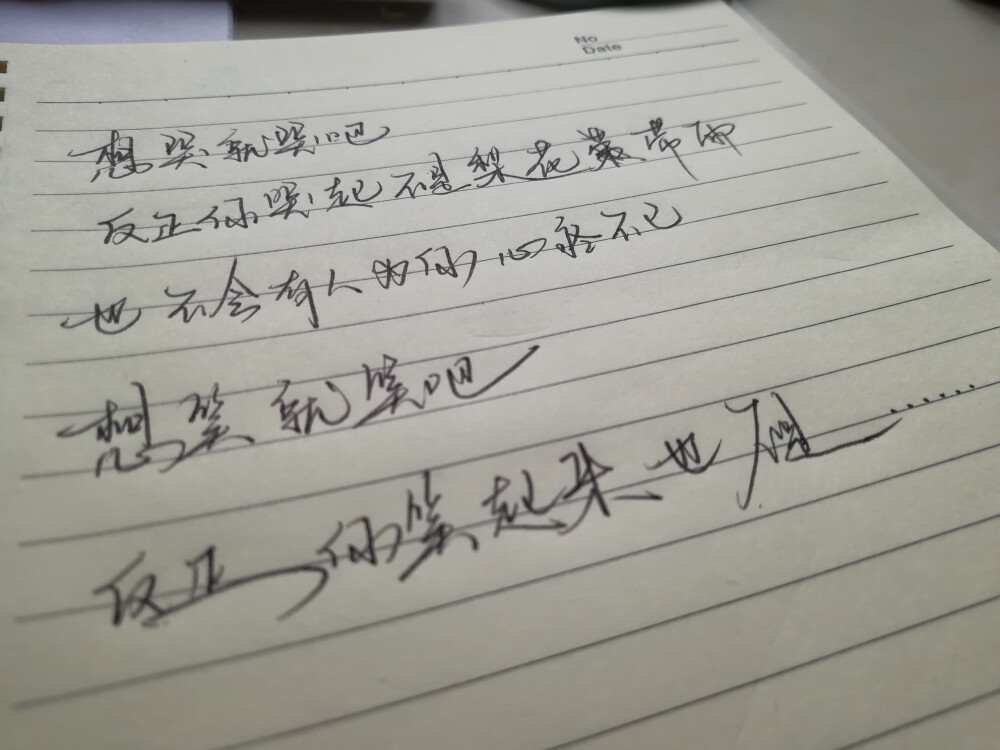 No
Date
想哭就哭吧
反正你哭起不是梨花带雨
也不会有人为你心疼不已
想笑就笑吧
反正你笑起来也……